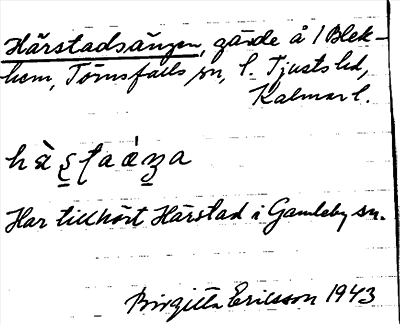 Hårstadsängen, gärde å 1 Blek-
hem, Törnsfalls sn, S. Tjusts hd,
Kalmar l.
Har tillhört Hårstad i Gamleby sn.
Birgitta Ericsson 1943